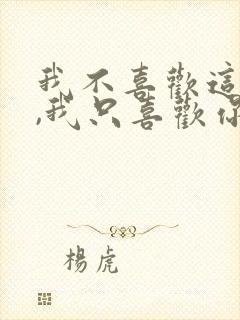 我不喜歡這
,我只喜歡你
楊虎